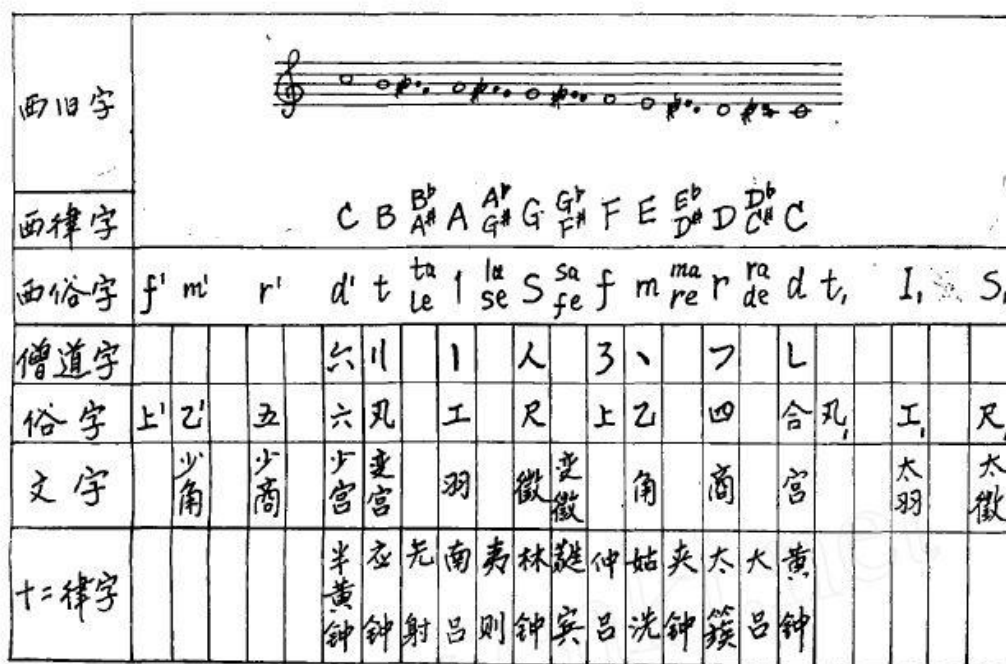 西旧字
西律字 C B B♭ A# A A♭ G# G G♭ F# F E E♭ D# D D♭ C# C
西俗字 f' m' r' d' t ta le l la se S sa fe f m ma re r ra de d t, l, S,
僧道字 六 〢 〡 人 ㄋ 丶 フ ㄴ
俗字 上' 乙' 五 六 凡 工 尺 上 乙 四 合 凡, 工, 尺,
文字 少角 少商 少宫 变宫 羽 徵 变徵 角 商 宫 太羽 太徵
十二律字 半黄钟 应钟 无射 南吕 夷则 林钟 蕤宾 仲吕 姑洗 夹钟 太簇 大吕 黄钟